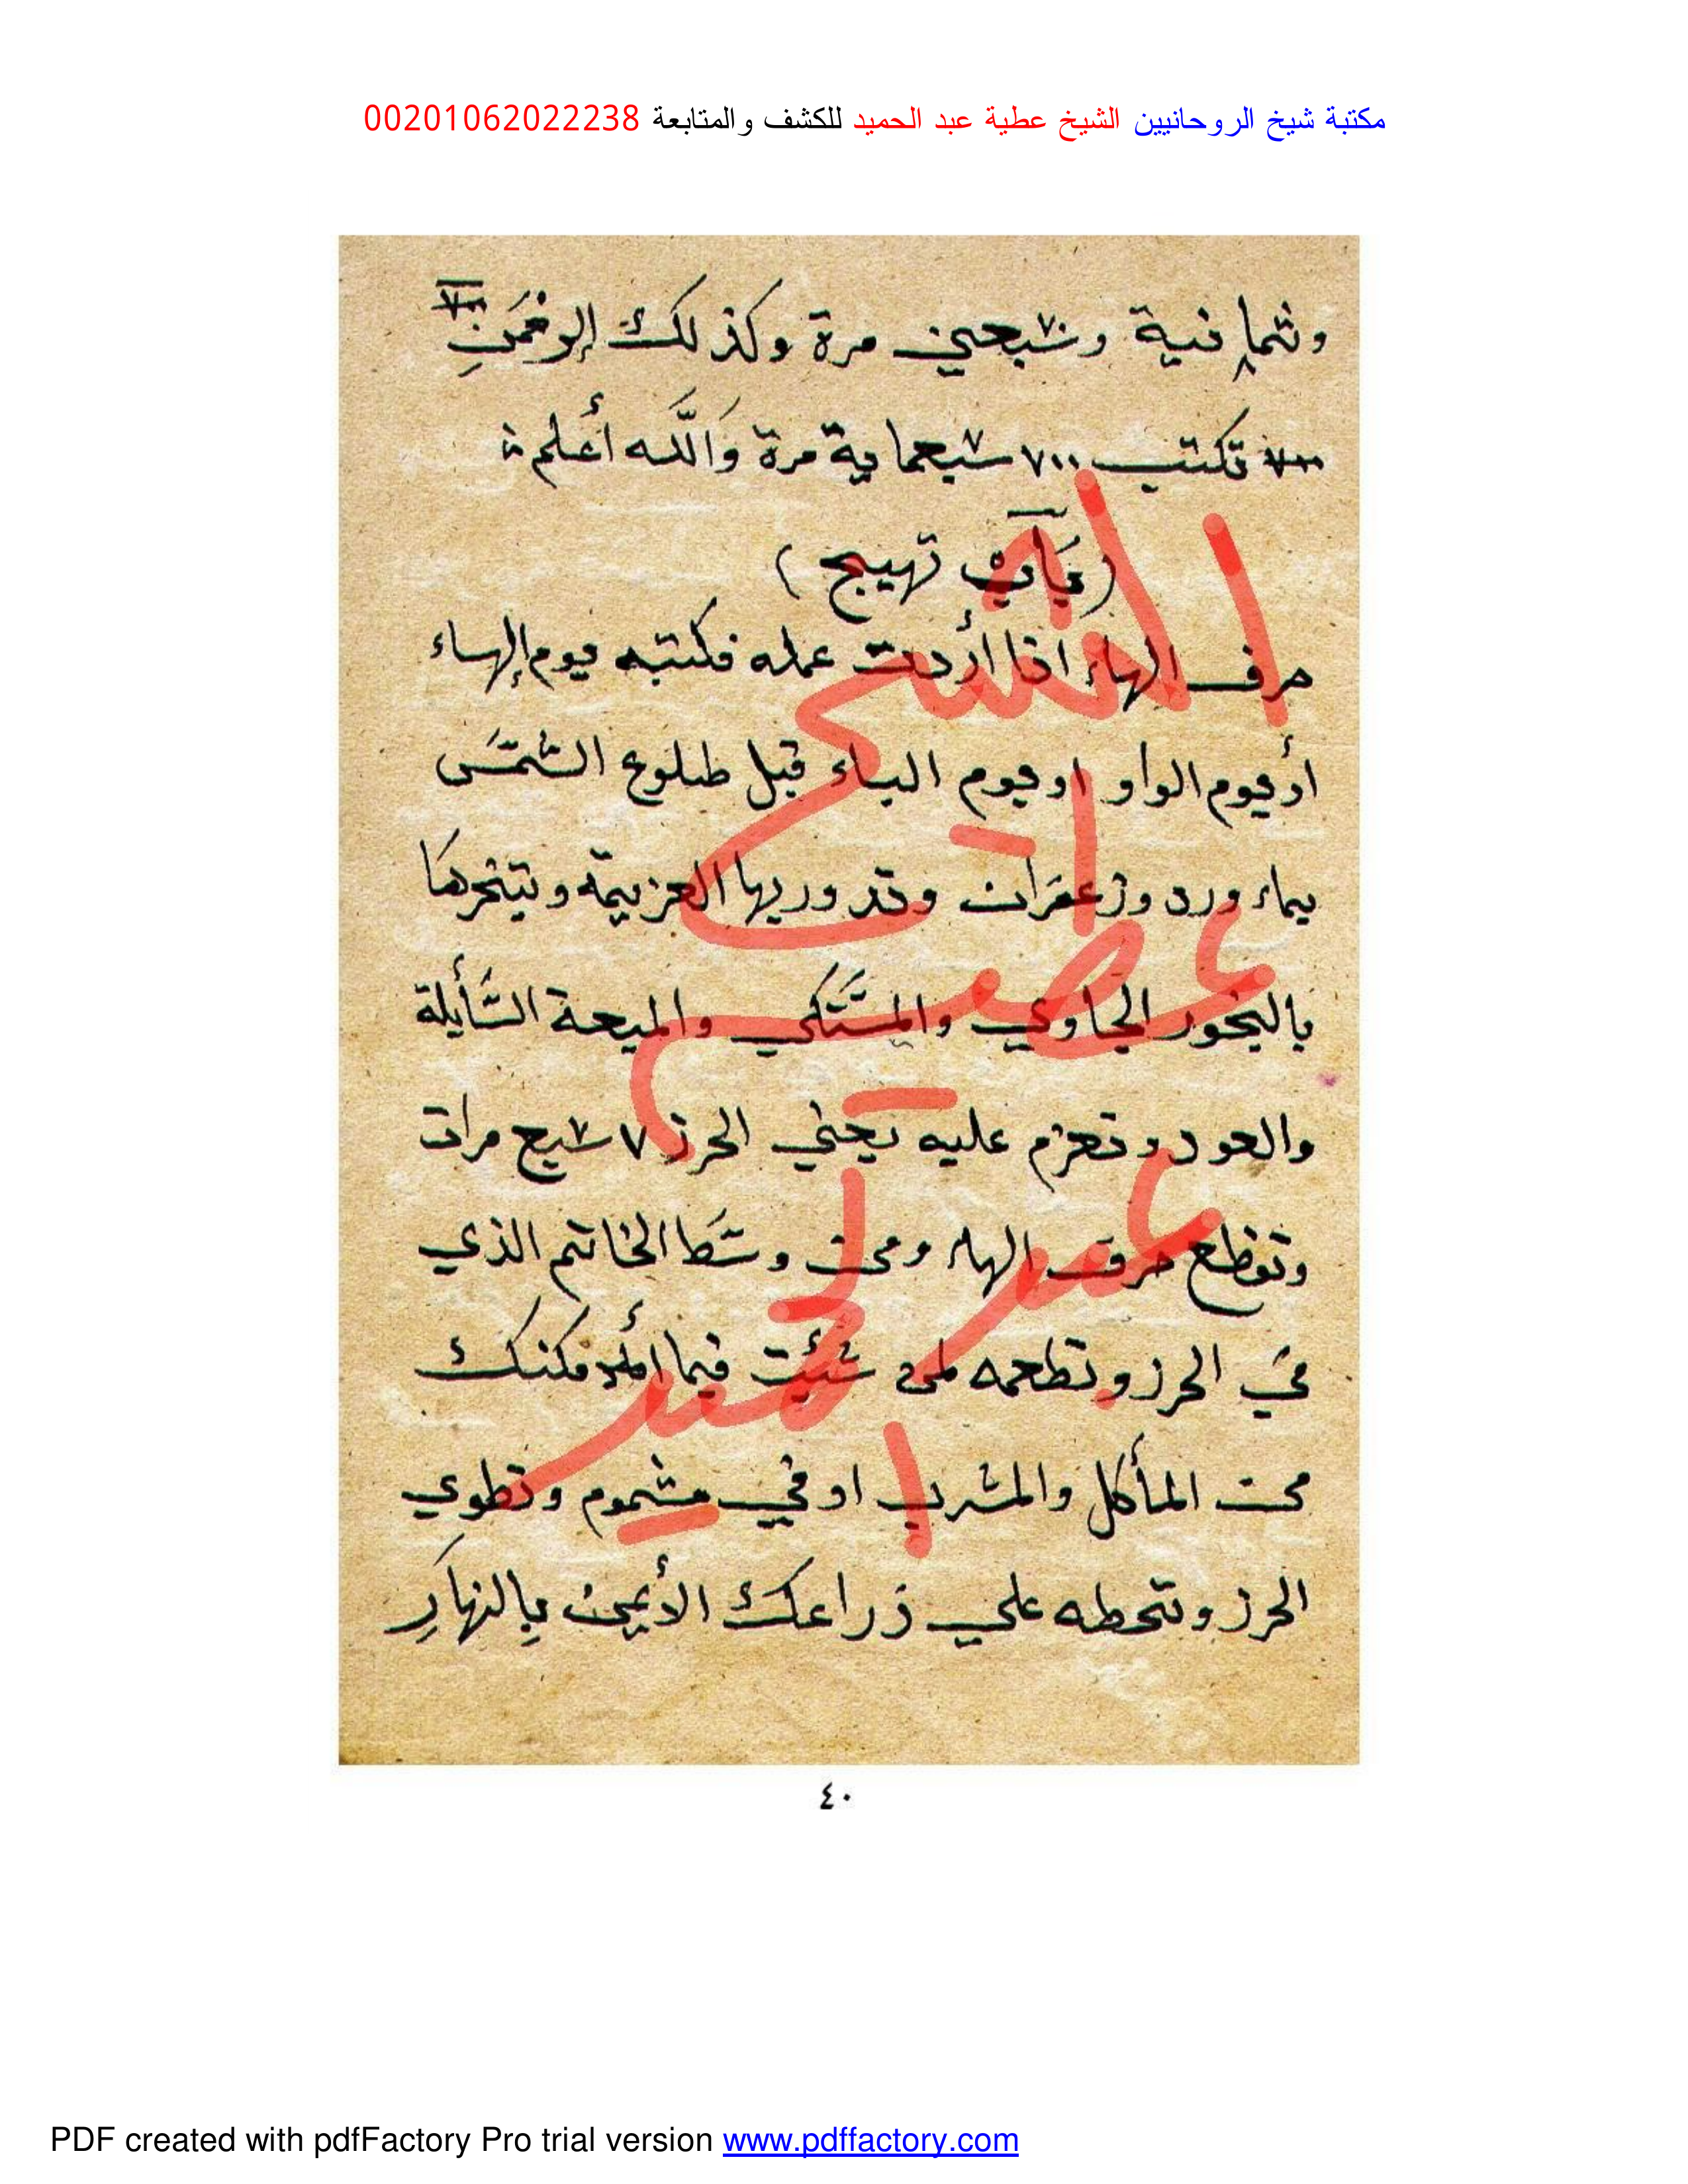 مكتبة شيخ الروحانيين الشيخ عطية عبد الحميد للكشف والمتابعة 00201062022238
وثمانية وسبعين مرة وكذلك
تكتب ٧٠٠ سبعماية مرة وَاللَّه أعلم
(بَاب تهيج)
حرف الهاء اذا أردت عمله فكتبه يوم الهاء
أو يوم الواو او يوم الباء قبل طلوع الشمَس
بماء ورد وزعفرَان وتدور بها العزيمة وتبخرها
بالبخور الجاوي والمستكي والميعة السَّأيلة
والعود وتعزم عليه يعني الحرز ٧ سبع مرات
وتقطع حرف الهاء ومن وسَط الخاتم الذي
في الحرز وتطعمه لمن شئت فيما مكنك
من المأكل والمشرب او في مشموم وتطوي
الحرز وتحطه علي زراعك الأيمن بِالنهارِ
الشيخ
عطية
عبد
الحميد
٤٠
PDF created with pdfFactory Pro trial version www.pdffactory.com